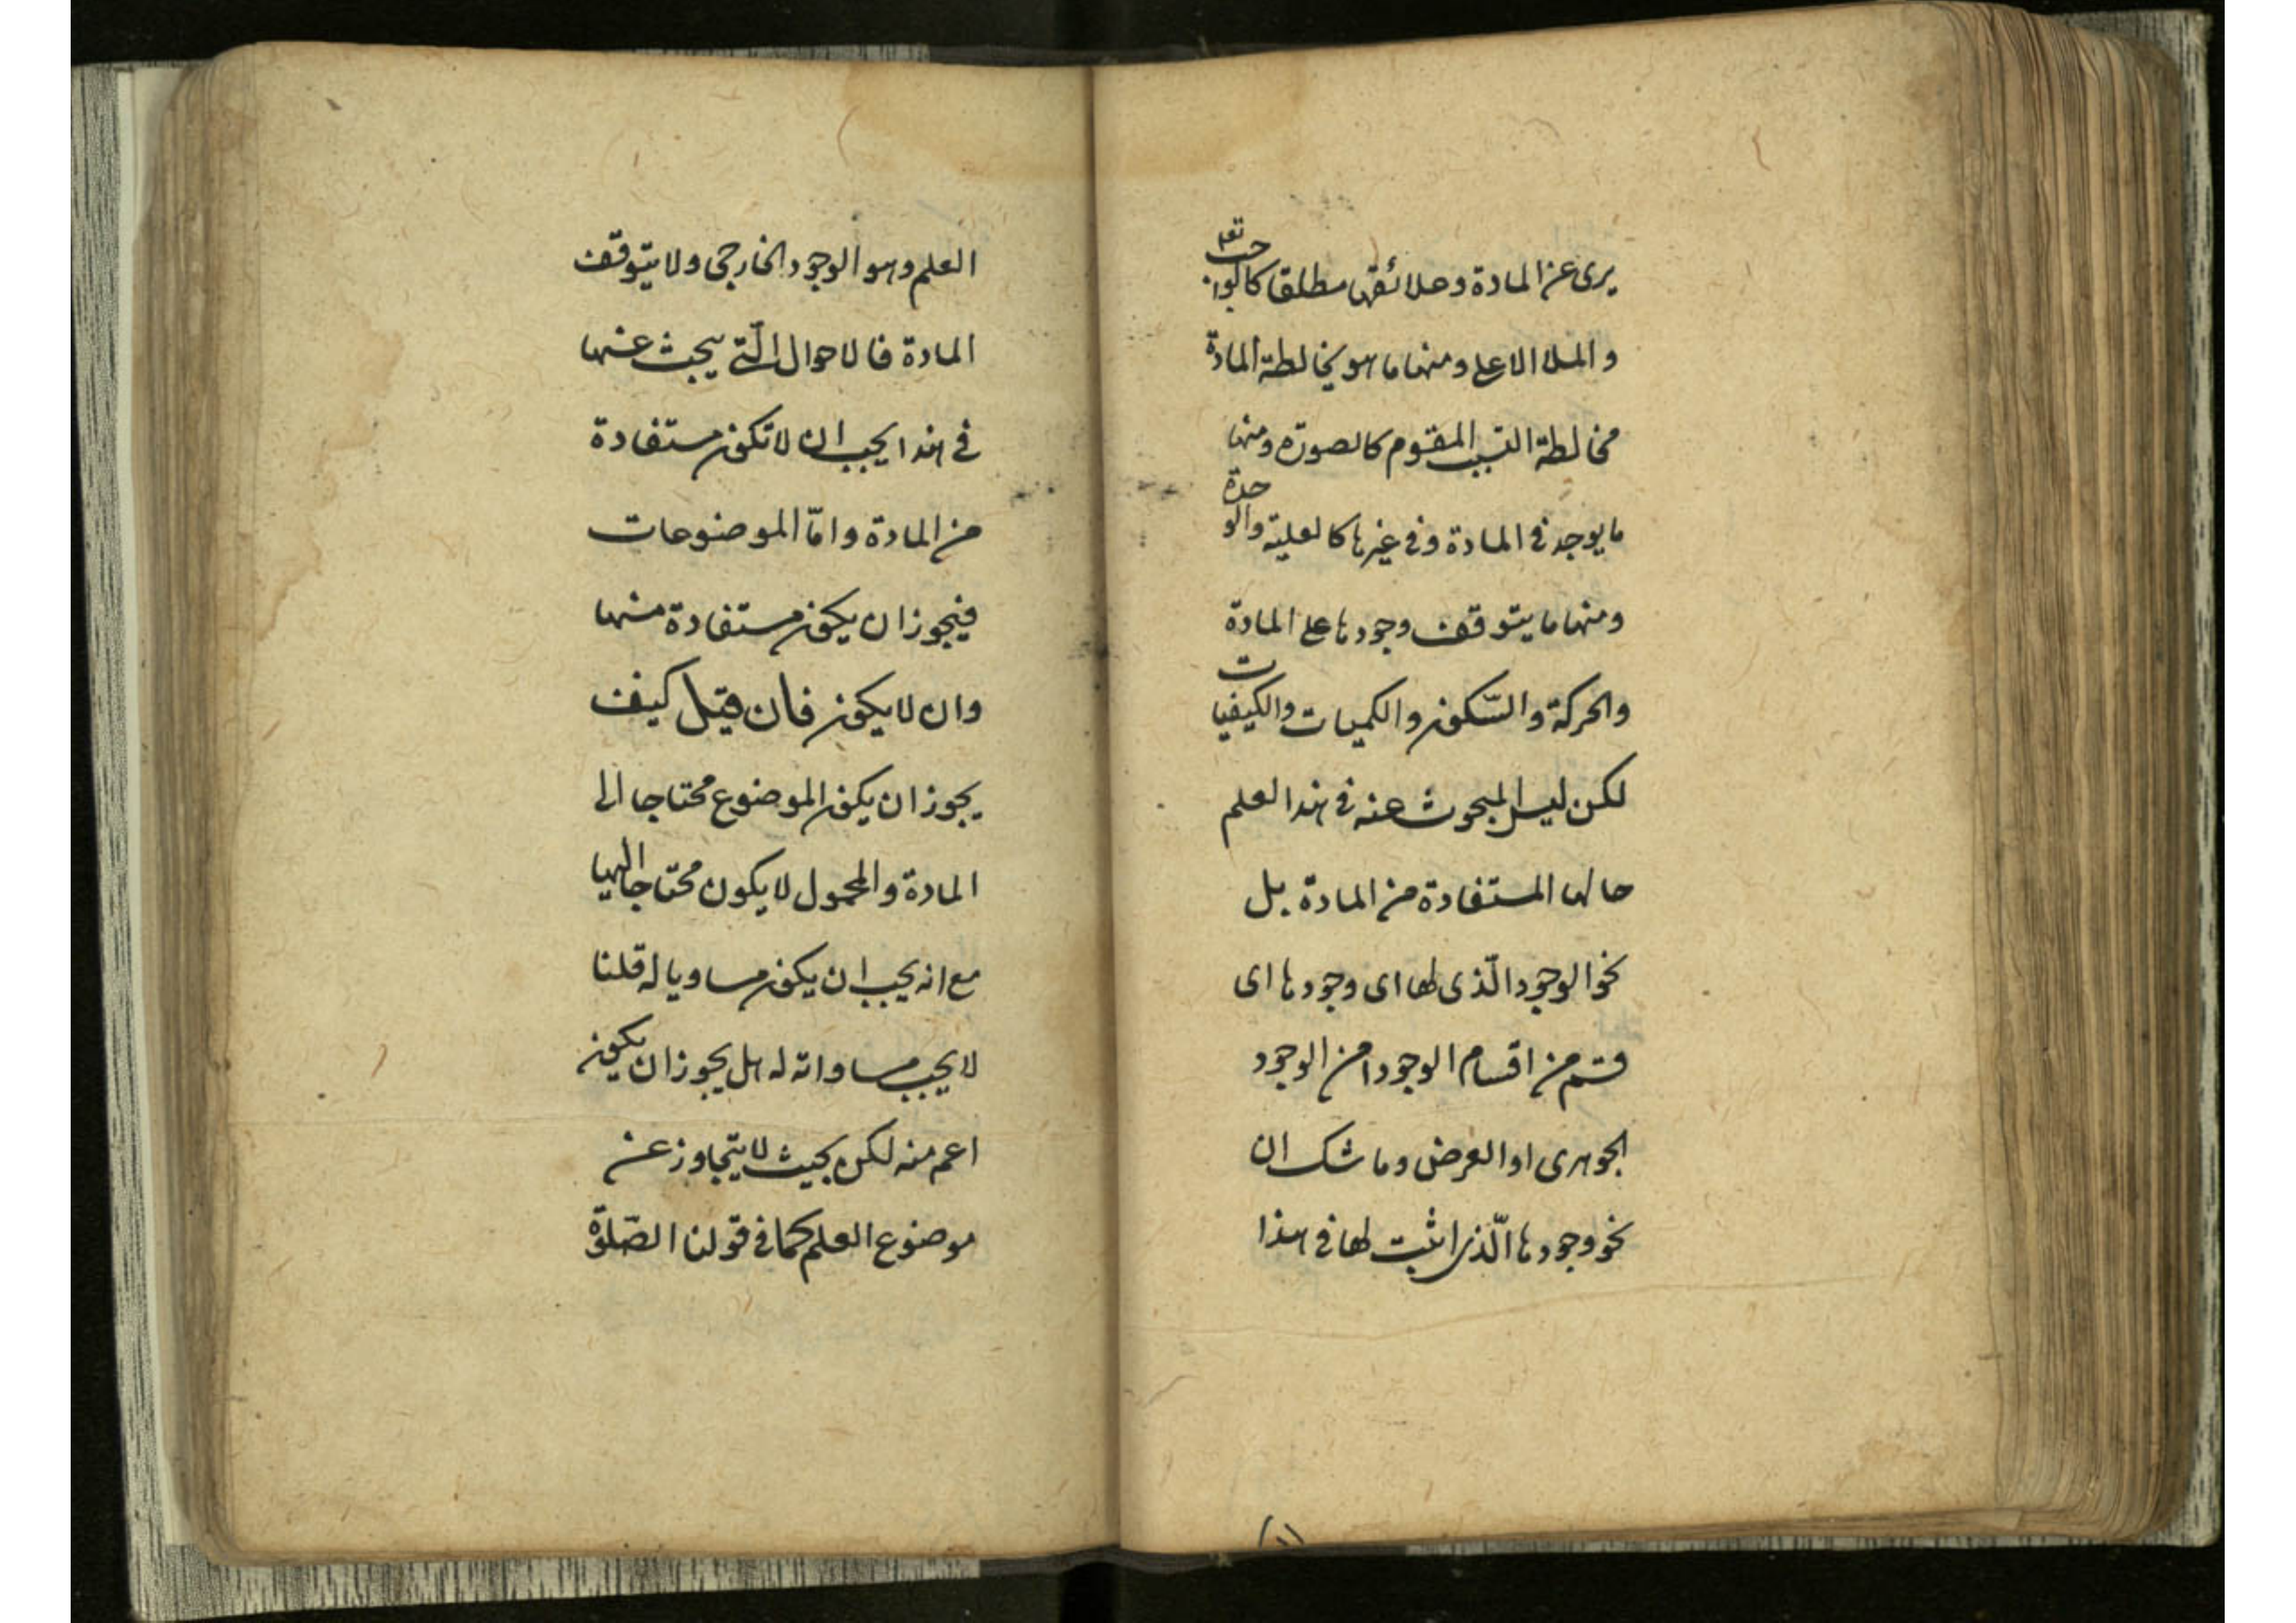 يرى عن المادة وعلائقها مطلقا كالواجب تعم
والملا الاعلى ومنها ما هو يخالطة المادة
مخالطة السبب المقوم كالصورة ومنها
ما يوجد في المادة وفي غيرها كالعلية والوحدة
ومنها ما يتوقف وجودها على المادة
والحركة والسّكون والكميات والكيفيات
لكن ليس المبحوث عنه في هذا العلم
حالها المستفادة من المادة بل
نحو الوجود الّذى لها اى وجودها اى
قسم من اقسام الوجود امن الوجود
الجوهرى او العرض وما شك ان
نحو وجودها الّذى اثبت لها في هذا
(١١
العلم وهو الوجود الخارجى ولا يتوقف
المادة فالاحوال الّتي يبحث عنها
في هذا يجب ان لا تكون مستفادة
من المادة وامّا الموضوعات
فيجوز ان يكون مستفادة منها
وان لا يكون فان قيل كيف
يجوز ان يكون الموضوع محتاجا الى
المادة والمحمول لا يكون محتاجا اليها
مع انه يجب ان يكون مساويا له قلنا
لا يجب مساواته له بل يجوز ان يكون
اعم منه لكن بحيث لا يتجاوز عن
موضوع العلم كما في قولنا الصّلوة